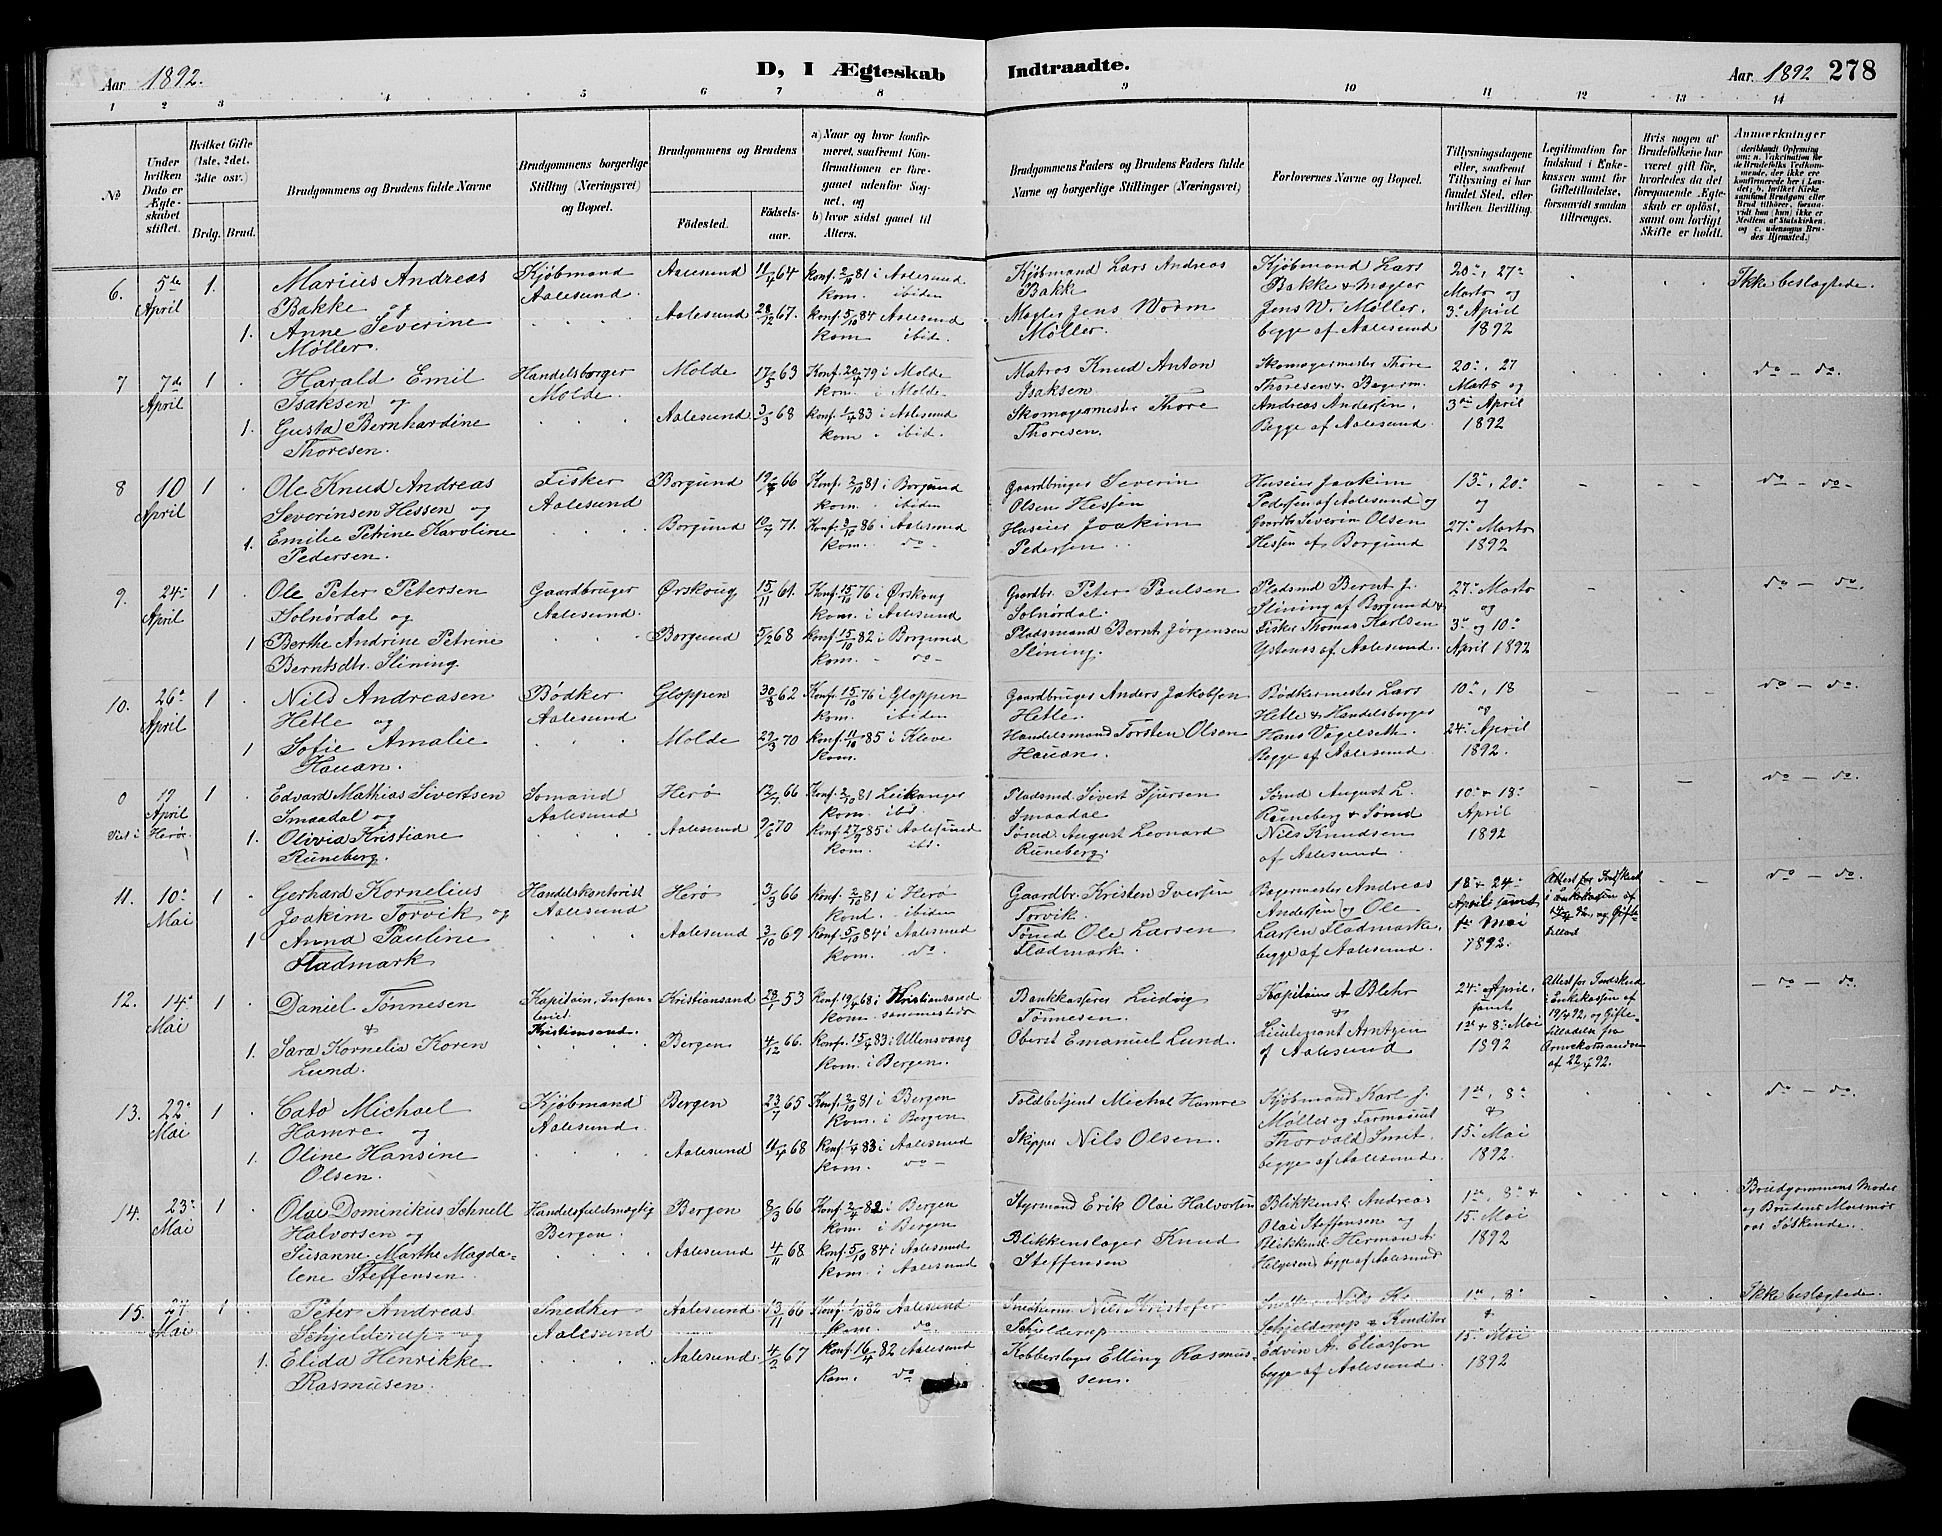 Aar 1892.
D, I Ægteskab Indtraadte.
Aar 1892 278
1 2 3 4 5 6 7 8 9 10 11 12 13 14
No
Under hvilken Dato er Ægteskabet stiftet.
Hvilket Gifte (1ste, 2det, 3die osv.)
Brdg. Brud.
Brudgommens og Brudens fulde Navne
Brudgommens borgerlige Stilling (Næringsvei) og Bopæl.
Brudgommens og Brudens
Fødested. Fødselsaar.
a) Naar og hvor konfirmeret, saafremt Konfirmationen er foregaaet udenfor Sognet, og
b) hvor sidst gaaet til Alters.
Brudgommens Faders og Brudens Faders fulde Navne og borgerlige Stillinger (Næringsvei)
Forlovernes Navne og Bopæl.
Tillysningsdagene eller, saafremt Tillysning ei har fundet Sted, efter hvilken Bevilling.
Legitimation for Indskud i Enkekassen samt for Giftetilladelse, forsaavidt saadan tiltrænges.
Hvis nogen af Brudefolkene har været gift før, hvorledes da det foregaaende Ægteskab er opløst, samt om lovligt Skifte er holdt.
Anmærkninger (deriblandt Oplysning om: a. Vakcination for de Brudefolks Vedkommende, der ikke ere konfirmerede her i Landet; b. hvilket Kirkesamfund Brudgom eller Brud tilhører, forsaavidt han (hun) ikke er Medlem af Statskirken, og c. udensogns Brudes Hjemsted.)
6. 5te April 1. Marius Andreas Bakke og Kjøbmand Aalesund. Aalesund 11/4 64 Konf. 2/10 81 i Aalesund kom. ibiden Kjøbmand Lars Andreas Bakke
1. Anne Severine Møller. Aalesund 28/12 67. Konf. 5/10 84 Aalesund kom ibid. Mægler Jens Worm Møller.
Kjøbmand Lars Bakke & Mægler Jens W. Møller, begge af Aalesund
20de, 27de Marts og 3de April 1892
Ikke beslægtede.
7 7de April 1 Harald Emil Isaksen og Handelsborger Molde. Molde 17/5 63 Konf. 20/4 79 i Molde kom. i Molde Matros Knud Anton Isaksen
1. Gusta Bernhardine Thoresen. Aalesund 3/3 68 Konf. 1/4 83 i Aalesund kom. ibid. Skomagermester Thore Thoresen.
Skomagermester Thore Thoresen & Bagerm. Andreas Andersen. Begge af Aalesund.
20de, 27 Marts og 3die April 1892
do – do.
8 10 April 1 Ole Knud Andreas Severinsen Hessen og Fisker Aalesund Borgund 19/7 66 Konf. 2/10 81 i Borgund kom. ibiden Gaardbruger Severin Olsen Hessen
1. Emilie Petrine Karoline Pedersen. Borgund 10/7 71. Konf. 3/10 86 i Aalesund kom. do Huseier Joakim Pedersen.
Huseier Joakim Pedersen af Aalesund og Gaardbr. Severin Olsen Hessen af Borgund
13de, 20de og 27de Marts 1892
do – do.
9. 24de April 1 Ole Peter Petersen Solnørdal og Gaardbruger Aalesund. Ørskoug 15/11 61. Konf. 15/10 76 i Ørskoug kom. i Aalesund Gaardbr. Peter Paulsen Solnørdal.
1 Berthe Andrine Petrine Berntsdtr. Slining. Borgund 5/2 68 Konf. 15/10 82 i Borgund kom. do Pladsmand Bernt Jørgensen Slining.
Pladsmd Bernt J. Slining af Borgund & Fisker Thomas Karlsen Ystenes af Aalesund.
27de Marts og 3de og 10de April 1892
do – do.
10. 26de April 1 Nils Andreasen Hetle og Bødker Aalesund Gloppen 30/8 62 Konf. 15/10 76 i Gloppen kom. ibiden Gaardbruger Anders Jakobsen Hetle.
1 Sofie Amalie Hauan. Molde 29/3 70 Konf. 11/10 85 i Kleve kom. Handelsmand Torsten Olsen Hauan.
Bødkermester Lars Hetle & Handelsborger Hans Vagelseth. Begge af Aalesund
10de, 18 og 24de April 1892.
do – do.
0 19 April Viet i Herø 1 Edvard Mathias Sivertsen Smaadal og Sømand Aalesund Herø 12/7 66 Konf. 2/10 81 Leikanger kom. ibd Pladsmd. Sivert Sjursen Smaadal
1. Olivia Kristiane Runeberg. Aalesund 9/6 70 Konf. 27/9 85 i Aalesund kom. ibd. Sømd. August Leonard Runeberg.
Sømd August L. Runeberg & Sømd Nils Knudsen af Aalesund
10de & 18de April 1892
do – do.
11. 10de Mai 1 Gerhard Kornelius Joakim Torvik og Handelskontorist Aalesund Herø 3/3 66 Konf. 2/10 81 i Herø kond. ibiden Gaardbr. Kristen Iversen Torvik.
1 Anna Pauline Fladmark Aalesund 3/10 69 Konf. 5/10 84 i Aalesund kom. do. Tømd Ole Larsen Fladmark.
Bagermester Andreas Andersen og Ole Larsen Fladmark. begge af Aalesund.
18 & 24de April samt 1ste Mai 1892.
Attest for Indskud i Enkekassen af 14/4 92, og Giftetillad
do – do.
12. 14de Mai 1 Daniel Tønnesen & Kapitain, Infanteriet. Kristiansand. Kristiansand 28/1 53 Konf. 19/4 68 i Kristiansand kom. sammesteds Bankkasserer Ludvig Tønnesen.
1. Sara Kornelia Koren Lund. Bergen 4/12 66. Konf. 15/4 83 i Ullensvang kom. i Bergen. Oberst Emanuel Lund.
Kapitaine A Blehr & Lieutenant Arntzen af Aalesund
24de April, samt 1ste & 8de Mai 1892
Attest for Indskud i Enkekassen af 19/4 92, og Giftetilladelse fra Armekomandoen af 22/4 92.
– do – do.
13. 22de Mai 1 Cato Michael Hamre og Kjøbmand Aalesund. Bergen 23/7 65 Konf. 2/10 81 i Bergen kom. i Bergen Toldbetjent Michal Hamre
1. Oline Hansine Olsen. Aalesund 11/4 68 Konf. 1/4 83 i Aalesund kom. do – Skipper Nils Olsen.
Kjøbmand Karl J. Møller og Farmaceut Thorvald Smit. begge af Aalesund.
1ste, 8de & 15de Mai 1892.
do – do.
14. 23de Mai 1 Olai Dominikus Schnell Halvorsen og Handelsfuldmægtig Bergen. Bergen 8/3 66 Konf. 2/4 82 i Bergen kom. i Bergen Styrmand Erik Olai Halvorsen
Susanne Marthe Magdalene Steffensen. Aalesund 4/11 68 Konf. 5/10 84 i Aalesund kom. i Aalesund Blikkenslager Knud Steffensen
Blikkensl. Andreas Olai Steffensen og Blikkensl. Herman A. Helgesen begge af Aalesund
1ste, 8de & 15. Mai 1892
Brudgommens Moder og Brudens Mormor var Søskende.
15. 27 Mai 1 Peter Andreas Schjelderup, og Snedker Aalesund Aalesund 13/11 66 Konf. 1/10 82 Aalesund kom. do Snedkerm. Nils Kristofer Schjelderup
1. Elida Henrikke Rasmusen. Aalesund. 4/2 67 Konf 16/4 82 Aalesund Kom. do Kobberslager Elling Rasmussen.
Snedker Nils K. Schjelderup & Konditor Edvin A. Eliassen begge af Aalesund.
1ste, 8de & 15de Mai 1892
Ikke beslægtede.